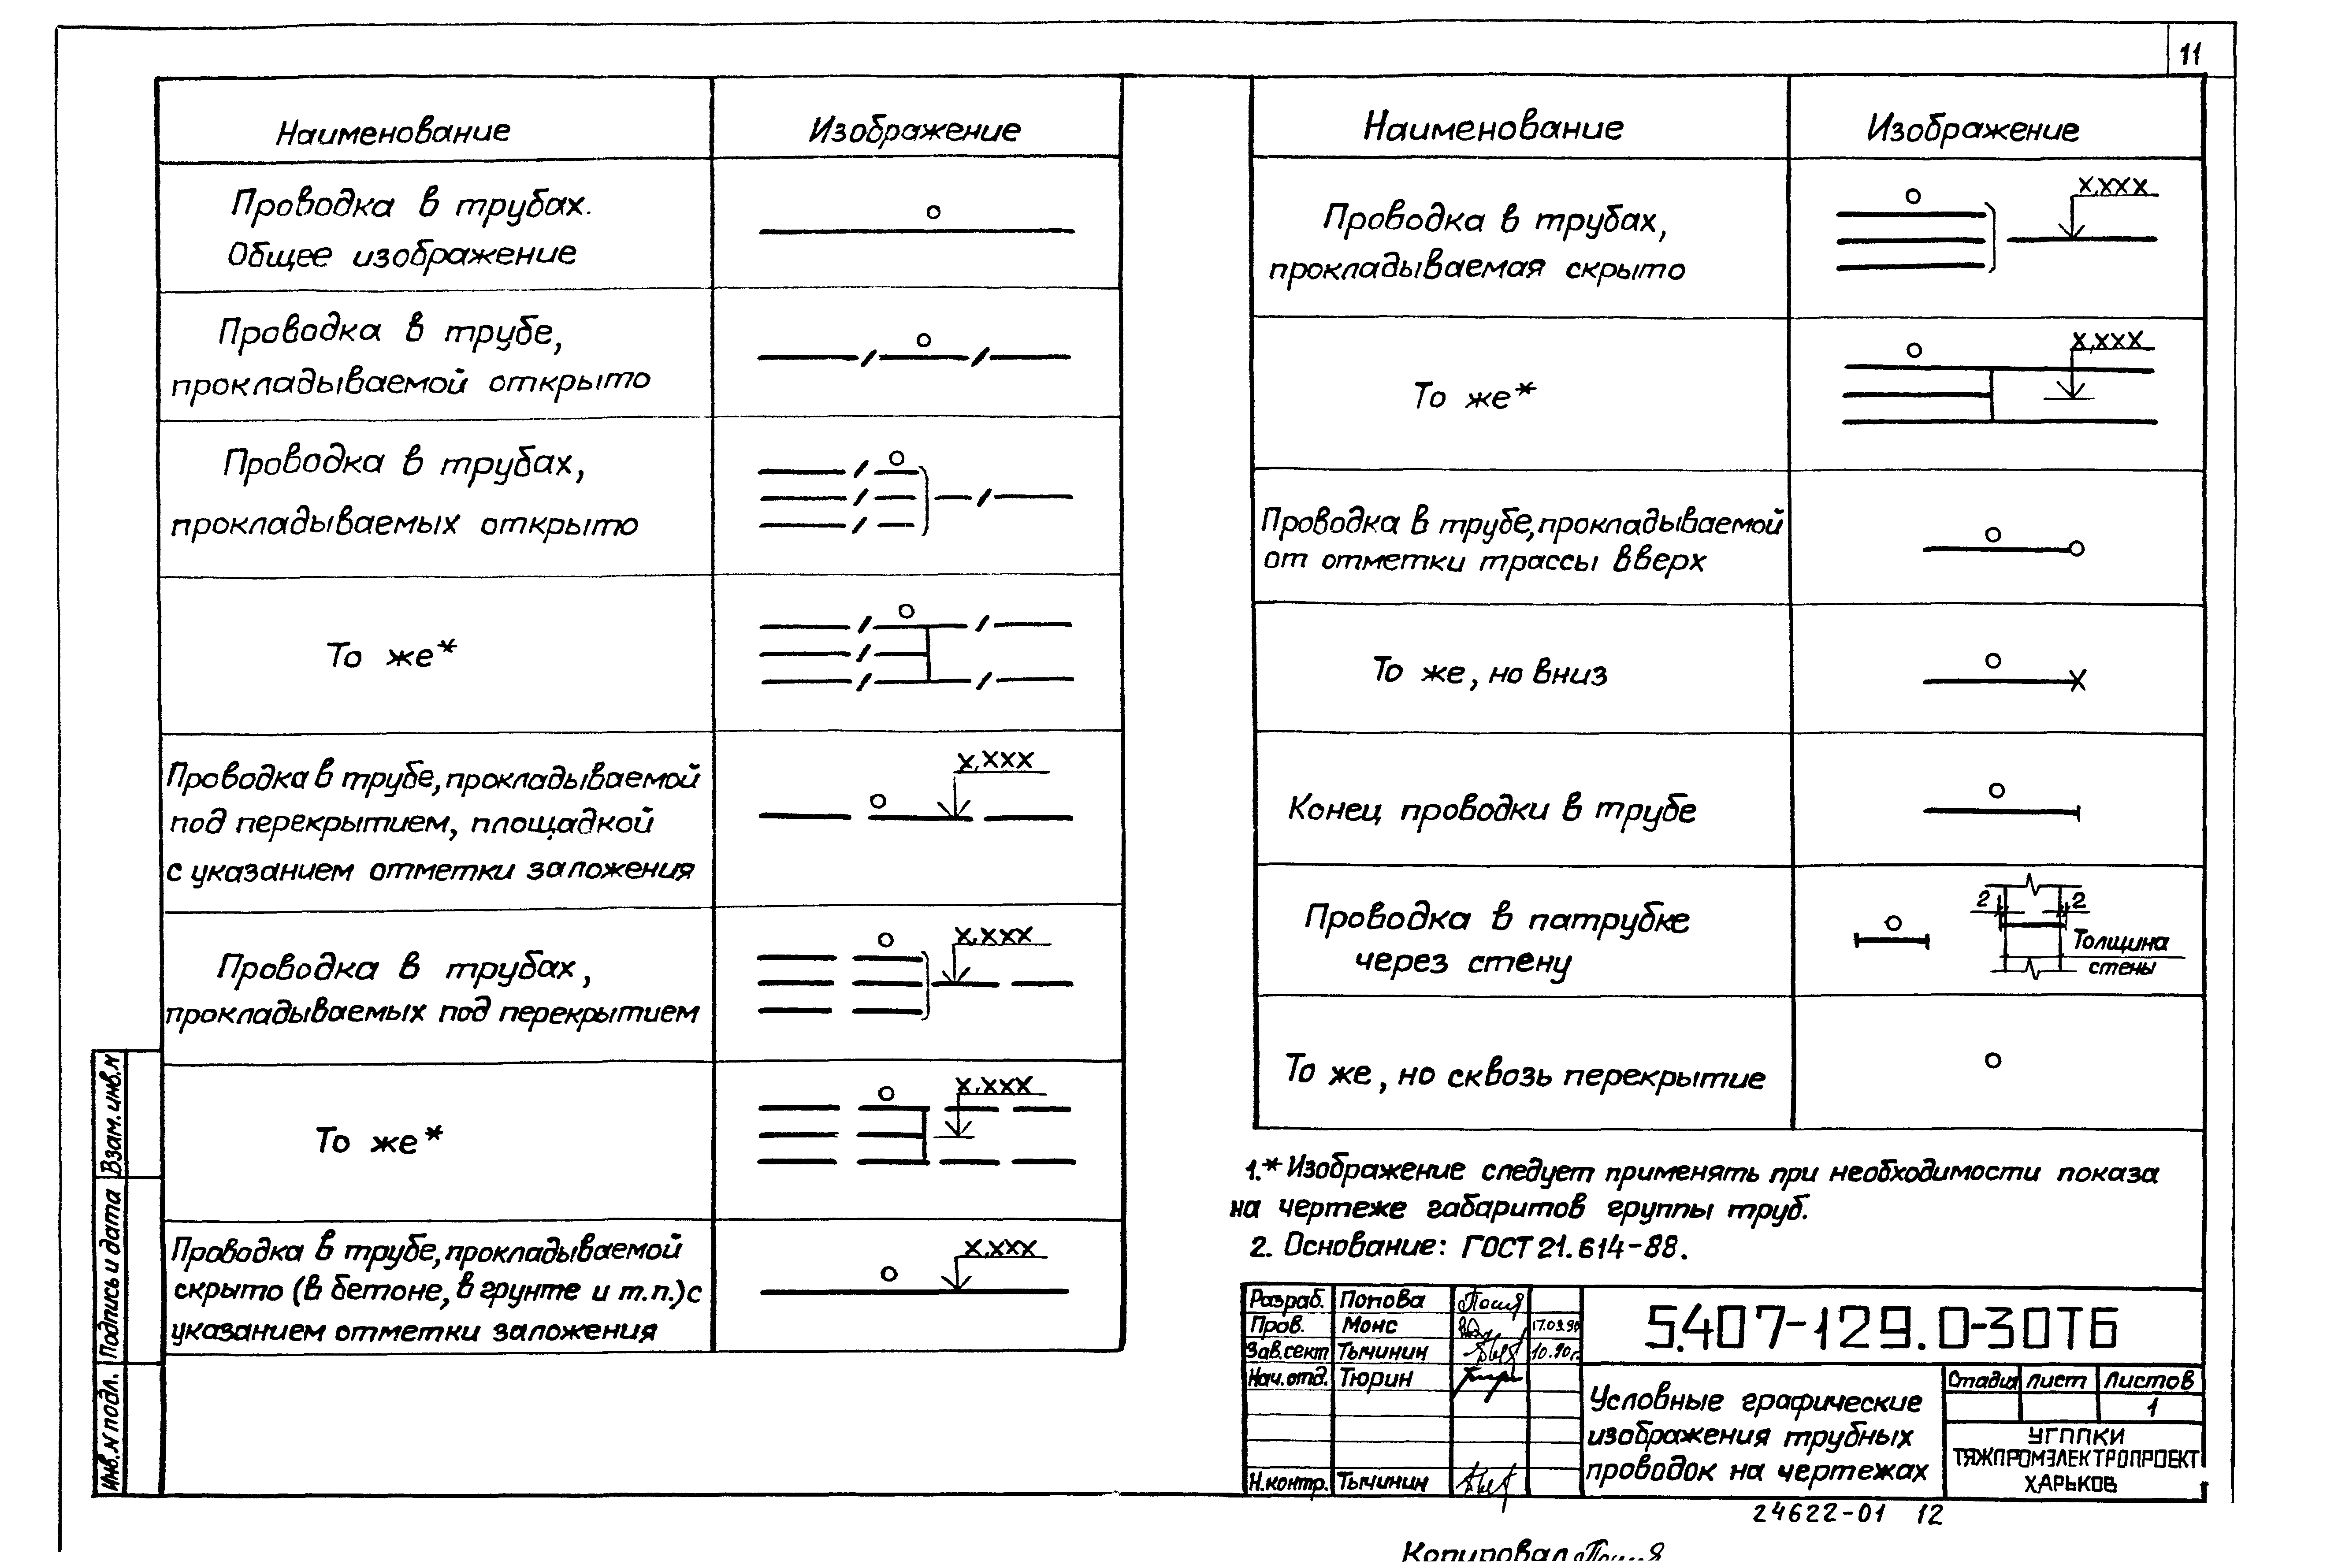 11
Наименование
Изображение
Проводка в трубах.
Общее изображение
Проводка в трубе,
прокладываемой открыто
Проводка в трубах,
прокладываемых открыто
То же*
Проводка в трубе, прокладываемой
под перекрытием, площадкой
с указанием отметки заложения
х,ххх
Проводка в трубах,
прокладываемых под перекрытием
х,ххх
То же*
х,ххх
Проводка в трубе, прокладываемой
скрыто (в бетоне, в грунте и т.п.) с
указанием отметки заложения
х,ххх
Наименование
Изображение
Проводка в трубах,
прокладываемая скрыто
х,ххх
То же*
х,ххх
Проводка в трубе, прокладываемой
от отметки трассы вверх
То же, но вниз
Конец проводки в трубе
Проводка в патрубке
через стену
2
2
Толщина
стены
То же, но сквозь перекрытие
1.* Изображение следует применять при необходимости показа
на чертеже габаритов группы труб.
2. Основание: ГОСТ 21.614-88.
Разраб. Попова
Пров. Монс 17.09.90
Зав.сект Тычинин 10.90г.
Нач.отд. Тюрин
Н.контр. Тычинин
5.407-129.0-30ТБ
Условные графические
изображения трубных
проводок на чертежах
Стадия лист Листов
1
УГППКИ
ТЯЖПРОМЭЛЕКТРОПРОЕКТ
ХАРЬКОВ
24622-01 12
Копировал
Инв.N подл.
Подпись и дата
Взам.инв.N